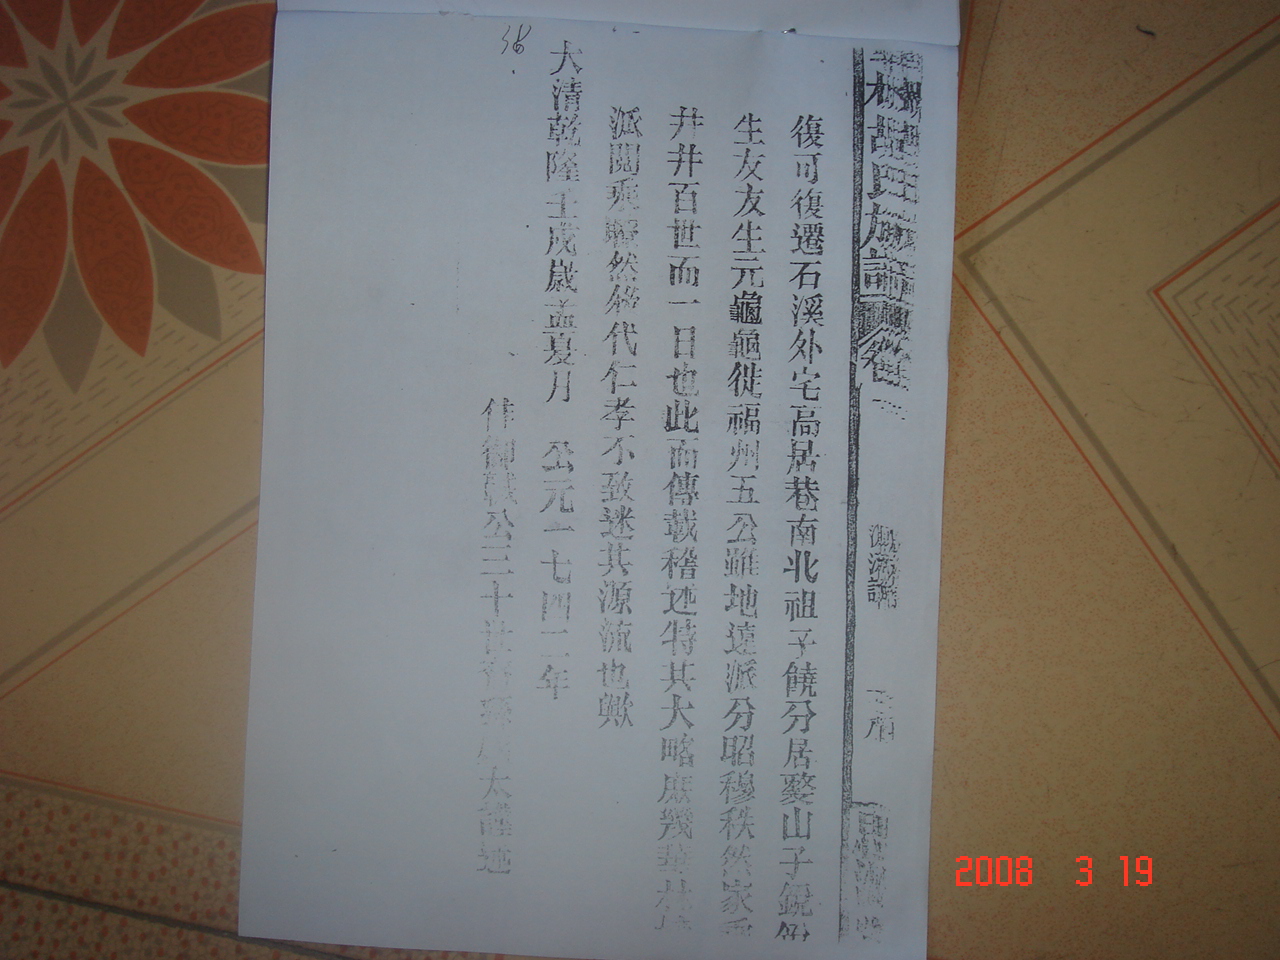 林胡氏族譜
復可復遷石溪外宅高居巷南北祖子饒分居婺山子銳
生友友生元龜龜徙福州五公雖地遠派分昭穆秩然家
井井百世而一日也此而傳載稽述特其大略庶幾華林
派閱乘瞭然代仁孝不致迷其源流也歟
大清乾隆壬戌歲孟夏月 公元一七四二年
侍御公三十世孫太謹述
2008 3 19